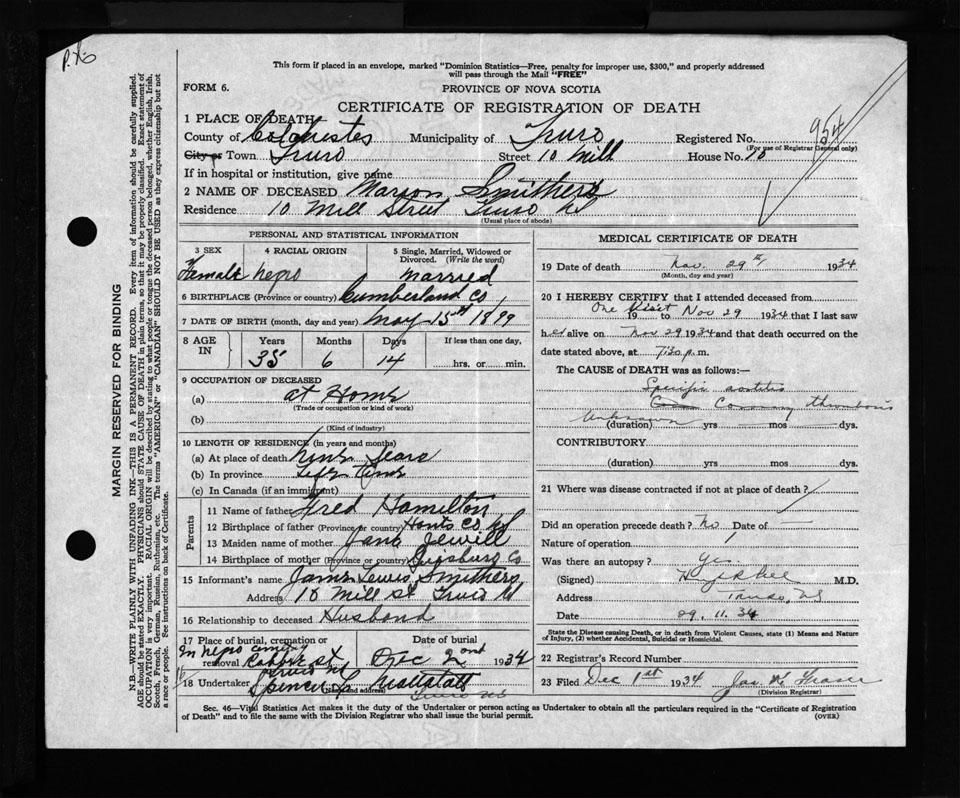 This form if placed in an envelope, marked "Dominion Statistics—Free, penalty for improper use, $300," and properly addressed
will pass through the Mail "FREE"
FORM 6.
PROVINCE OF NOVA SCOTIA
CERTIFICATE OF REGISTRATION OF DEATH
1 PLACE OF DEATH
County of Colchester Municipality of Truro Registered No. 954
(For use of Registrar General only)
City or Town Truro Street 10 Mill House No. 10
If in hospital or institution, give name
2 NAME OF DECEASED Marion Smithers
Residence 10 Mill Street Truro NS
(Usual place of abode)
PERSONAL AND STATISTICAL INFORMATION
3 SEX 4 RACIAL ORIGIN 5 Single, Married, Widowed or
Divorced. (Write the word)
Female Negro Married
6 BIRTHPLACE (Province or country) Cumberland Co,
7 DATE OF BIRTH (month, day and year) May 15th 1899
8 AGE IN Years Months Days If less than one day,
35 6 14 hrs. or min.
9 OCCUPATION OF DECEASED
(a) at Home
(Trade or occupation or kind of work)
(b)
(Kind of industry)
10 LENGTH OF RESIDENCE (in years and months)
(a) At place of death Nine Years
(b) In province Life Time
(c) In Canada (if an immigrant)
Parents
11 Name of father Fred Hamilton
12 Birthplace of father (Province or country) Hants Co NS
13 Maiden name of mother Jane Jewill
14 Birthplace of mother (Province or country) Co
15 Informant's name James Lewis Smithers
Address 10 Mill St Truro NS
16 Relationship to deceased Husband
17 Place of burial, cremation or
removal In negro St Truro NS
Date of burial
Dec 2nd 1934
18 Undertaker Spencer
(Name and address) Truro NS
MEDICAL CERTIFICATE OF DEATH
19 Date of death Nov. 29th 1934
(Month, day and year)
20 I HEREBY CERTIFY that I attended deceased from
One Visit 19 to Nov 29 1934 that I last saw
her alive on Nov 29 1934 and that death occurred on the
date stated above, at 7:30 p.m.
The CAUSE of DEATH was as follows:—
Specific aortitis
Coronary thrombosis
Unknown (duration) yrs mos dys.
CONTRIBUTORY
(duration) yrs mos dys.
21 Where was disease contracted if not at place of death?
Did an operation precede death? No Date of
Nature of operation
Was there an autopsy? Yes
(Signed) M.D.
Address Truro, NS
Date 29. 11. 34
State the Disease causing Death, or in death from Violent Causes, state (1) Means and Nature
of Injury, (2) whether Accidental, Suicidal or Homicidal.
22 Registrar's Record Number
23 Filed Dec 1st 1934 Jas. W Fraser
(Division Registrar)
Sec. 46—Vital Statistics Act makes it the duty of the Undertaker or person acting as Undertaker to obtain all the particulars required in the "Certificate of Registration
of Death" and to file the same with the Division Registrar who shall issue the burial permit.
(OVER)
MARGIN RESERVED FOR BINDING
N.B.—WRITE PLAINLY WITH UNFADING INK—THIS IS A PERMANENT RECORD. Every item of information should be carefully supplied.
AGE should be stated EXACTLY. PHYSICIANS should STATE CAUSE OF DEATH in plain terms, so that it may be properly classified. Exact statement of
OCCUPATION is very important. RACIAL ORIGIN will be described by stating to what people or tongue the deceased person belonged, whether English, Irish,
Scotch, French, German, Russian, Ruthenian, etc. The terms "AMERICAN" or "CANADIAN" SHOULD NOT BE USED as they express citizenship but not
a race or people. See instructions on back of Certificate.